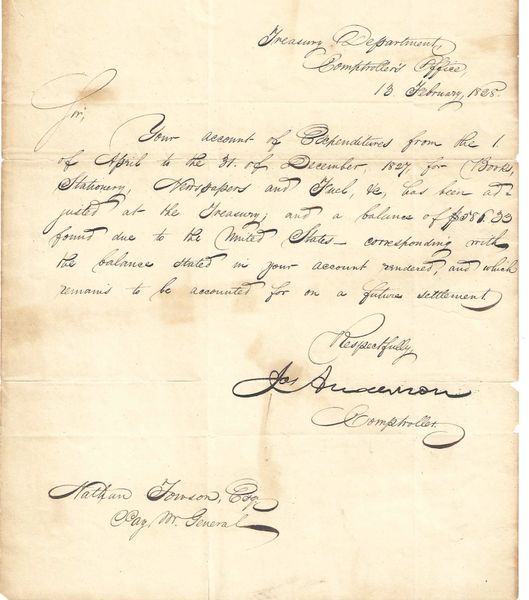 Treasury Department,
Comptroller's Office,
13 February, 1828.
Sir,
Your account of Expenditures from the 1.
of April to the 31. of December, 1827, for Books,
Stationery, Newspapers and Fuel, &c, has been ad-
justed at the Treasury; and a balance of
found due to the United States – corresponding with
the balance stated in your account rendered, and which
remains to be accounted for on a future settlement.
Respectfully,
Jos Anderson
Comptroller.
Nathan Towson, Esq
Pay Mr. General